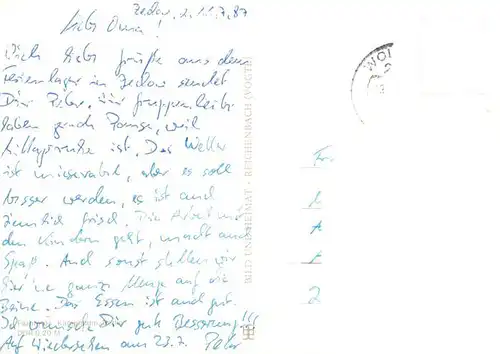 Zedow, d. 11.7.87
Liebe Oma!
Dich liebe Grüße aus dem
Ferienlager in Zedow sendet
Dir Peter. Wir
haben grade Pause, weil
Mittagsruhe ist. Das Wetter
ist miserabel, aber es soll
besser werden, es ist auch
ziemlich frisch. Die Arbeit mit
den Kindern geht, macht auch
Spaß. Und sonst stellen wir
hier 'ne ganze Menge auf die
Beine. Das Essen ist auch gut.
Ich wünsche Dir gute Besserung!!!
Auf Wiedersehen am 23.7. Peter
BILD UND HEIMAT · REICHENBACH (VOGTL)
WOL
Fr
L
A
F
2